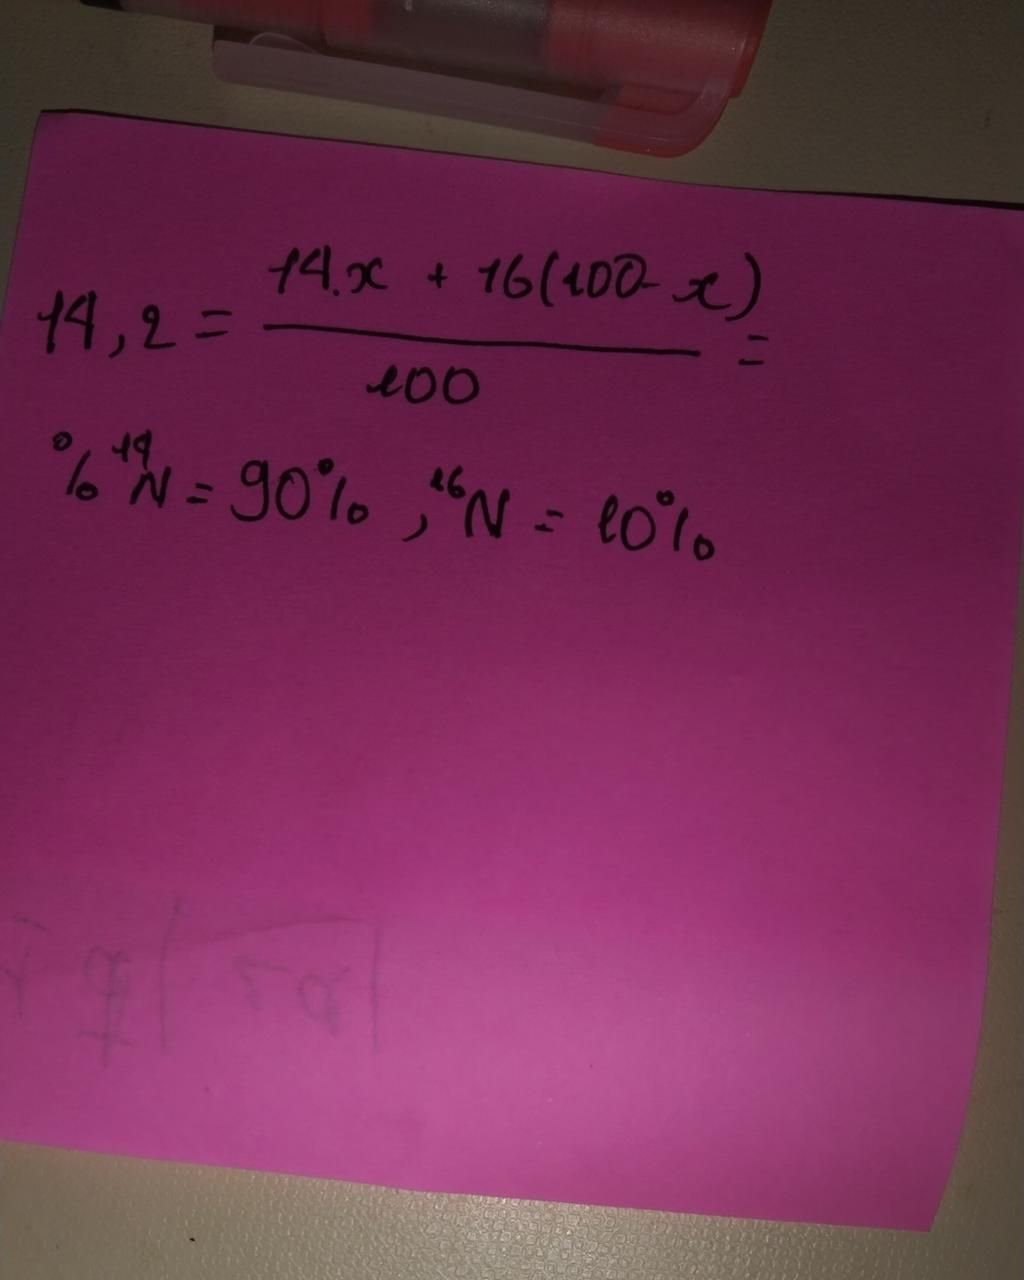 14,2 = \frac{14.x + 16(100-x)}{100} =
% ^{14}N = 90%, ^{16}N = 10%